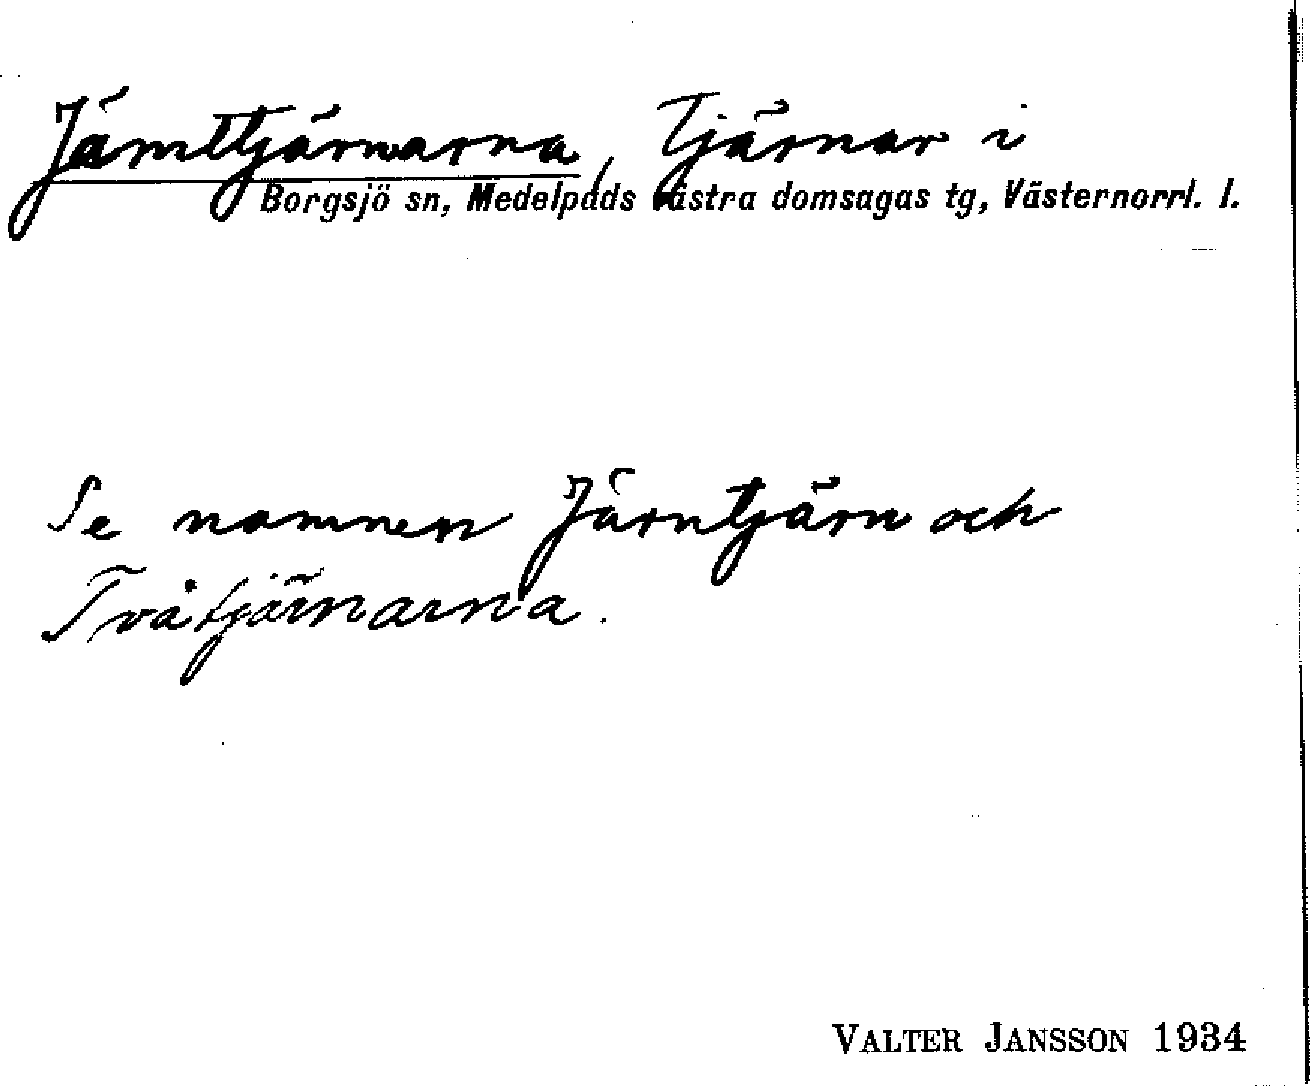 Jämttjärnarna, Tjärnar i
Borgsjö sn, Medelpads västra domsagas tg, Västernorrl. l.
Se namnen Järntjärn och
Tvåtjärnarna.
VALTER JANSSON 1934